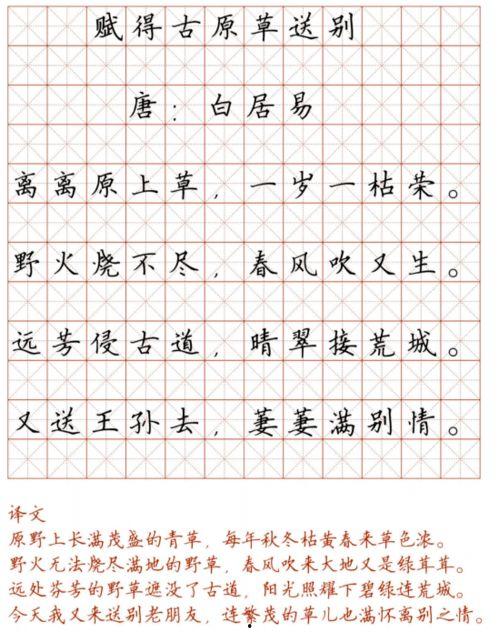 赋得古原草送别
唐：白居易
离离原上草，一岁一枯荣。
野火烧不尽，春风吹又生。
远芳侵古道，晴翠接荒城。
又送王孙去，萋萋满别情。
译文
原野上长满茂盛的青草，每年秋冬枯黄春来草色浓。
野火无法烧尽满地的野草，春风吹来大地又是绿茸茸。
远处芬芳的野草遮没了古道，阳光照耀下碧绿连荒城。
今天我又来送别老朋友，连繁茂的草儿也满怀离别之情。